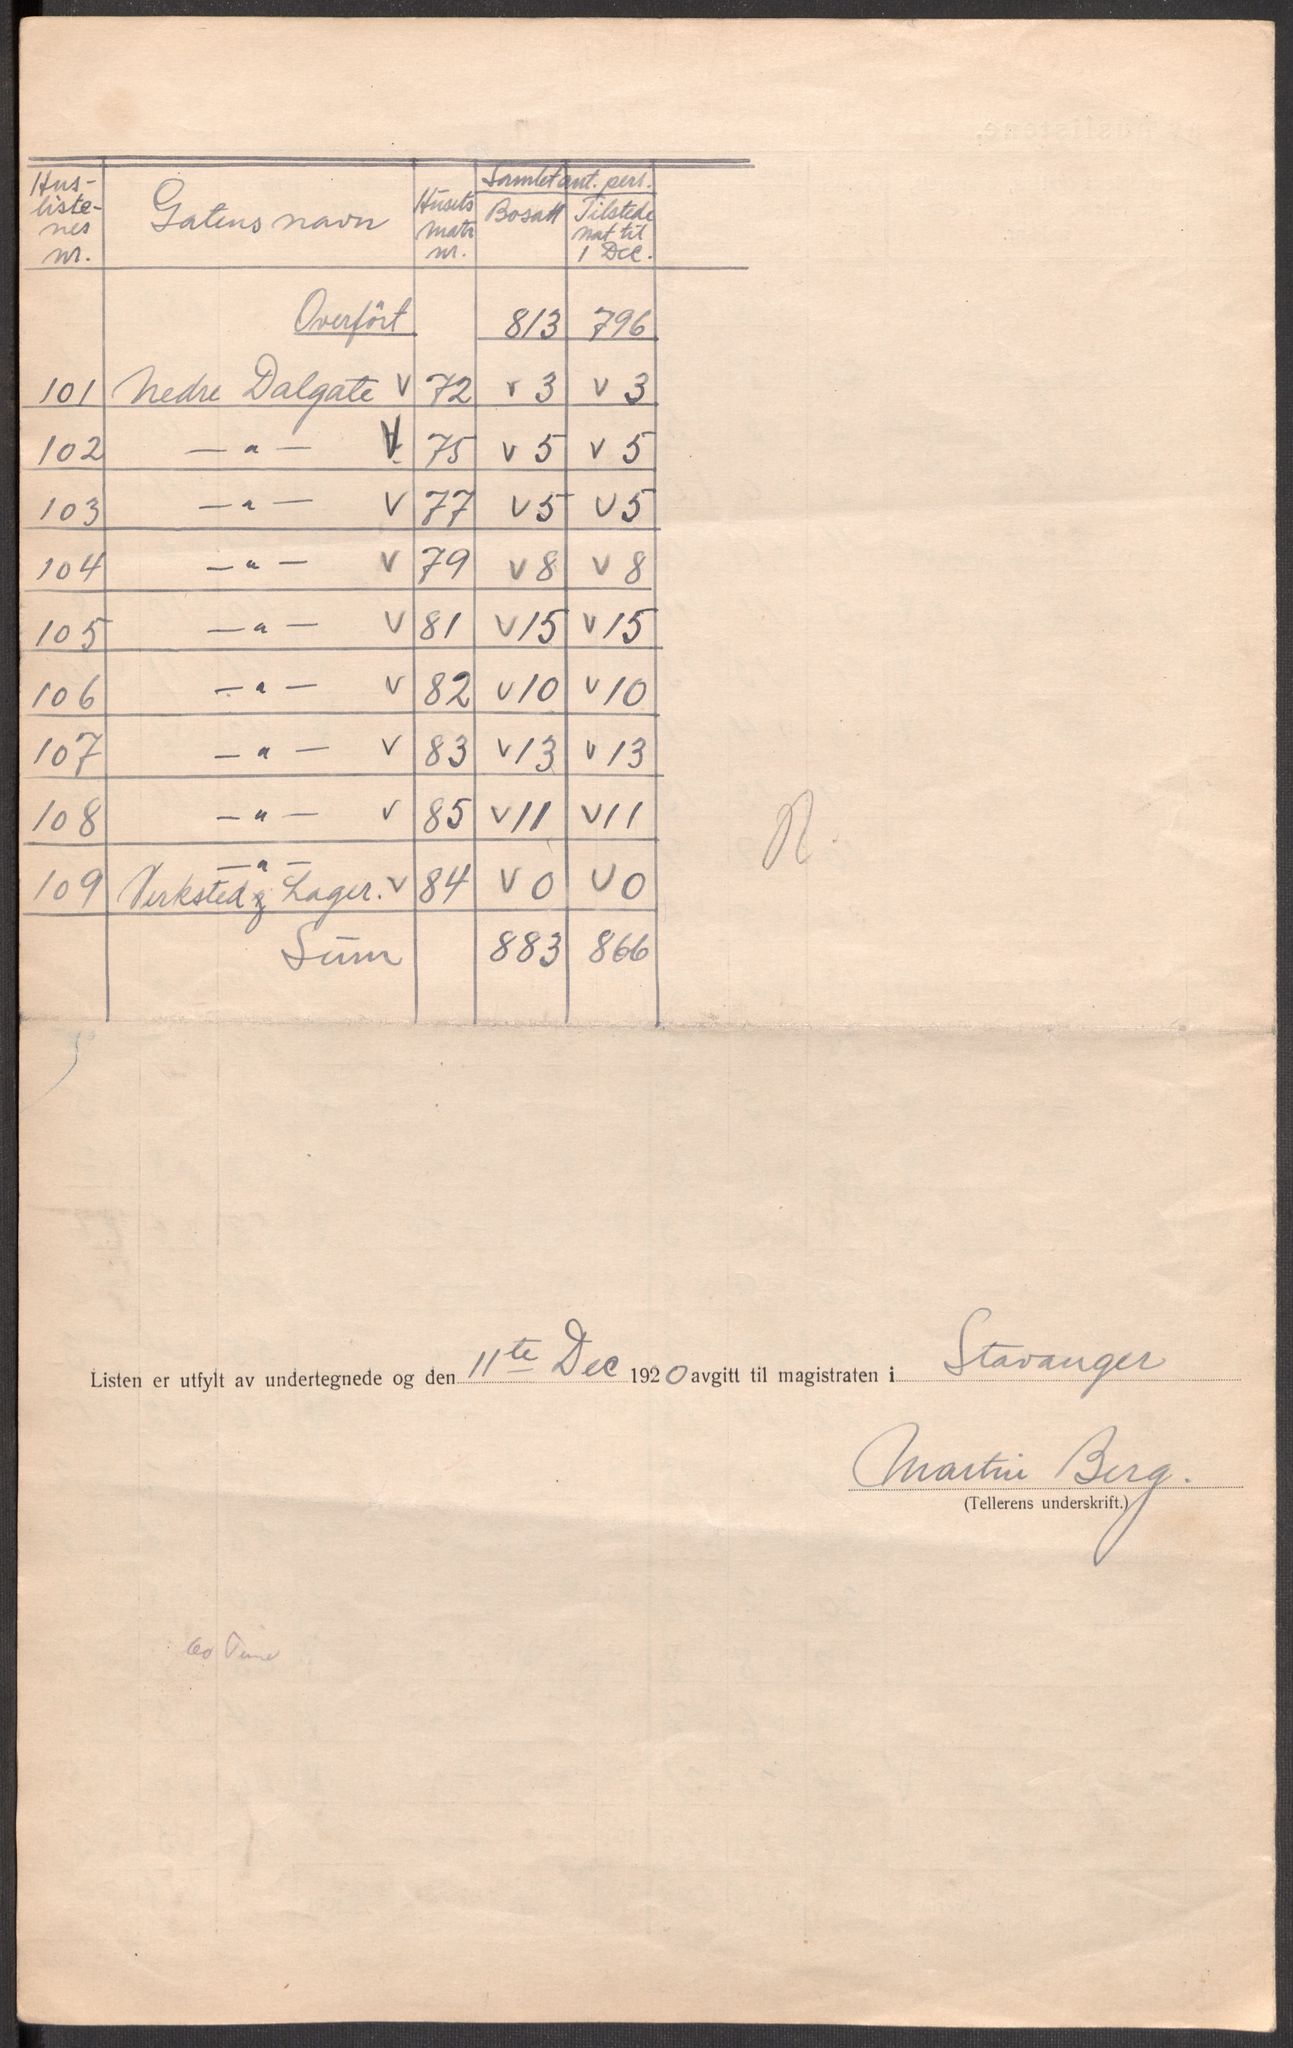 Hus- liste- nes nr. Gatens navn Husets matr nr. Samlet ant. pers. Bosatt Tilstede nat til 1 Dec.
Overført 813 796
101 Nedre Dalgate v 72 v 3 v 3
102 — " — v 75 v 5 v 5
103 — " — v 77 v 5 v 5
104 — " — v 79 v 8 v 8
105 — " — v 81 v 15 v 15
106 — " — v 82 v 10 v 10
107 — " — v 83 v 13 v 13
108 — " — v 85 v 11 v 11
— " —
109 Verksted og Lager. v 84 v 0 v 0
Sum 883 866
Listen er utfylt av undertegnede og den 11te Dec 1920 avgitt til magistraten i Stavanger
Martin Berg.
(Tellerens underskrift.)